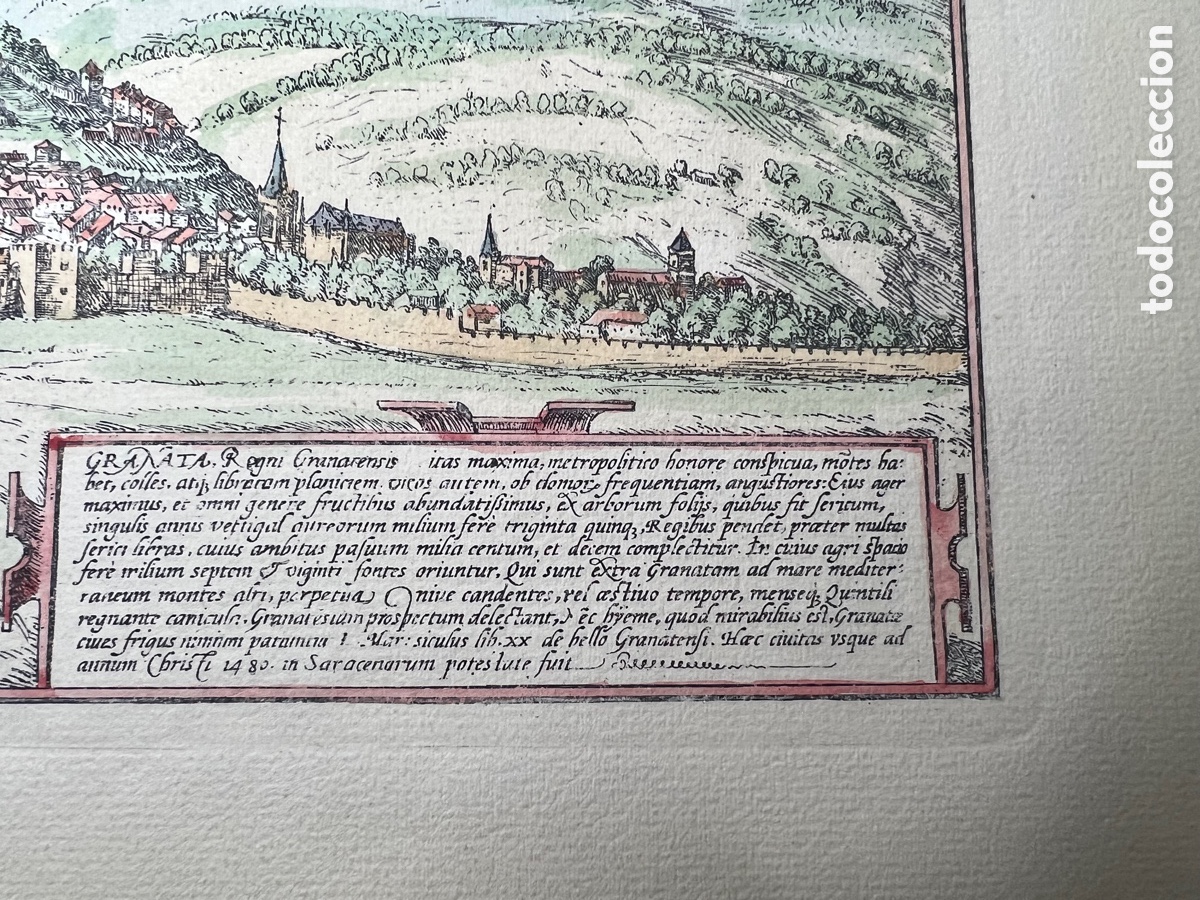 GRANATA, Regni Granatensis itas maxima, metropolitico honore conspicua, mõtes ha-
bet, colles, atq, libratam planiciem. vicos autem, ob domorz frequentiam, angustiores: Eius ager
maximus, et omni genere fructibus abundatissimus, ex arborum folijs, quibus fit sericum,
singulis annis vectigal aureorum milium ferè triginta quinq, Regibus pendet, præter multas
serici libras, cuius ambitus passuum milia centum, et decem complectitur. In cuius agri spacio
ferè milium septem & viginti fontes oriuntur. Qui sunt extra Granatam ad mare mediter-
raneum montes alti, perpetua nive candentes, vel æstivo tempore, menseq, Quintili
regnante canicula, prospectum delectant, ec hÿeme, quod mirabilius est, Granatæ
cives frigus nimium Mar: siculus lib. xx de bello Granatensi. Hæc civitas vsque ad
annum Christi 1480. in Saracenorum potestate fuit
todocoleccion